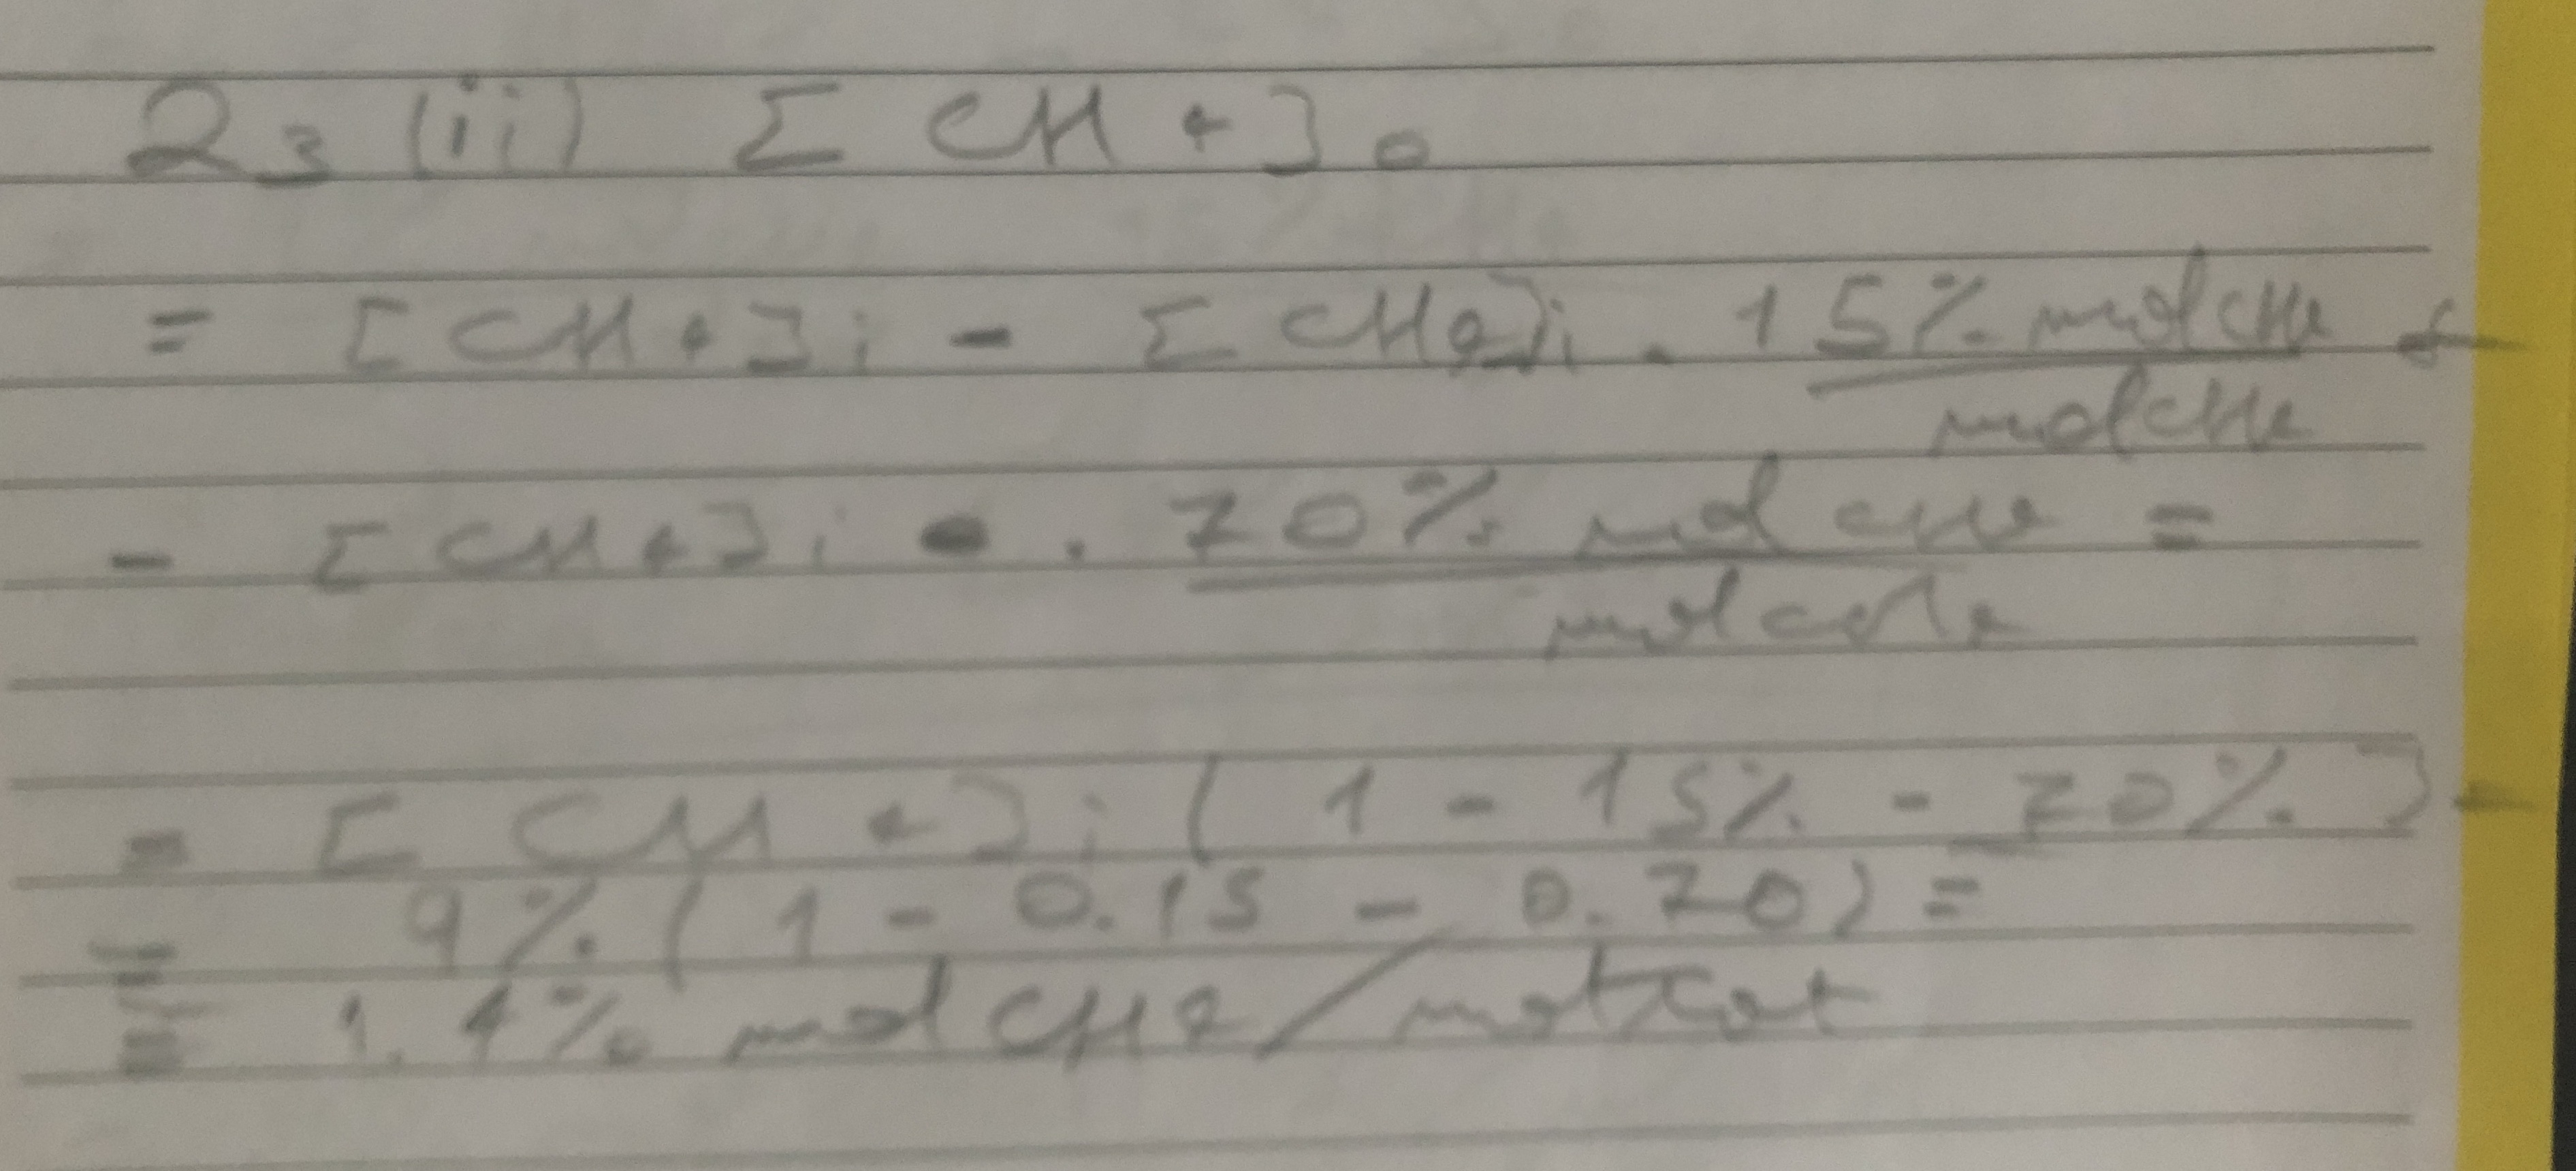 23 (ii) [CH4]o
= [CH4]i - [CH4]i . 15% mol CH4
mol CH4
- [CH4]i . 70% mol CH4 =
mol
= [CH4]i (1 - 15% - 70%)
= 9% (1 - 0.15 - 0.70) =
= 1.4% mol CH4/mol tot